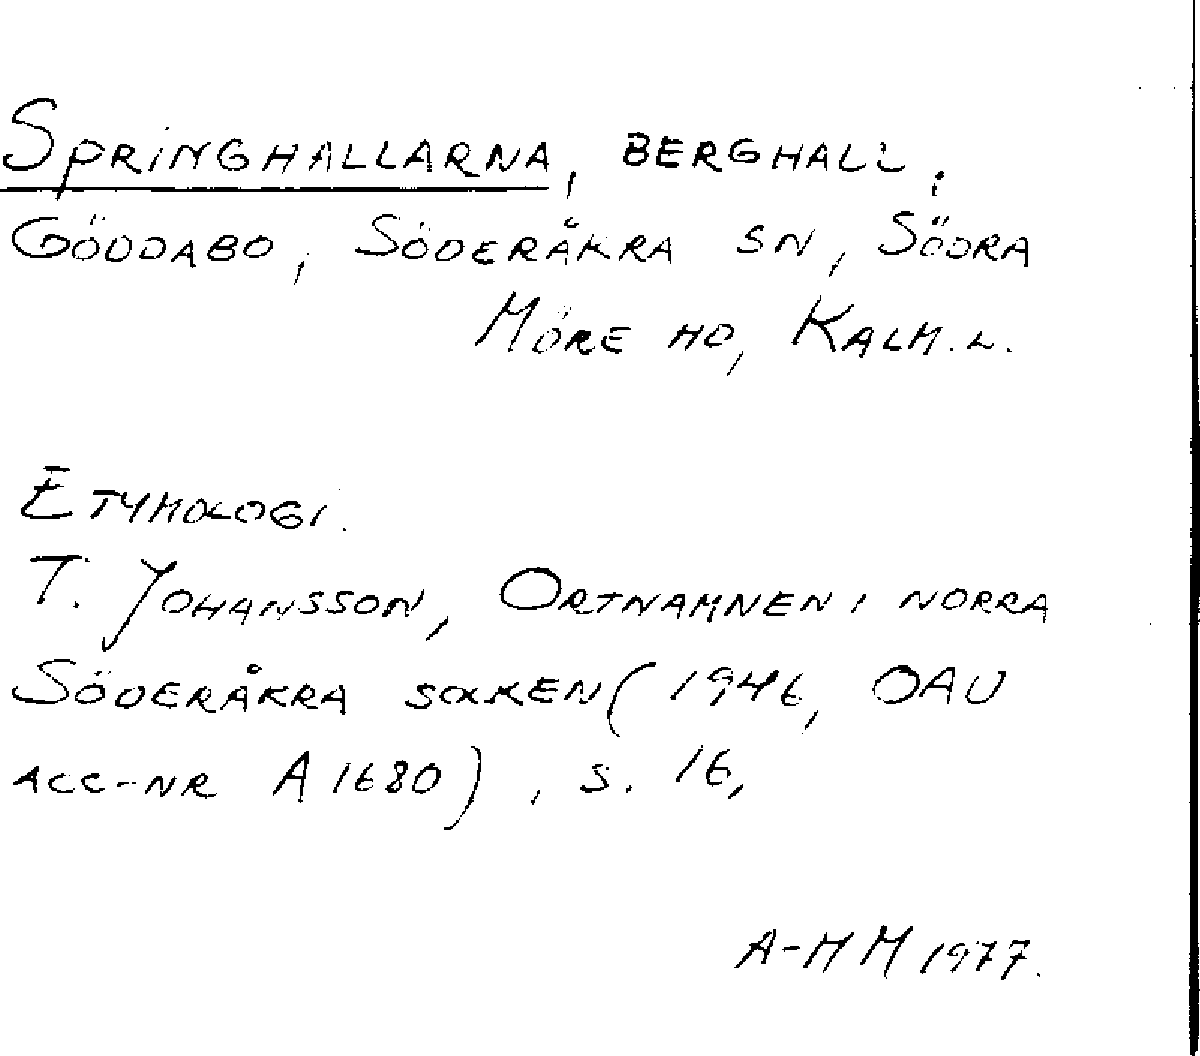 SPRINGHALLARNA, BERGHALL,
GÖDDABO, SÖDERÅKRA SN, SÖDRA
MÖRE HD, KALM. L.
ETYMOLOGI.
T. JOHANSSON, ORTNAMNEN I NORRA
SÖDERÅKRA SOCKEN (1946, OAU
ACC-NR A 1680), S. 16,
A-MM 1977.